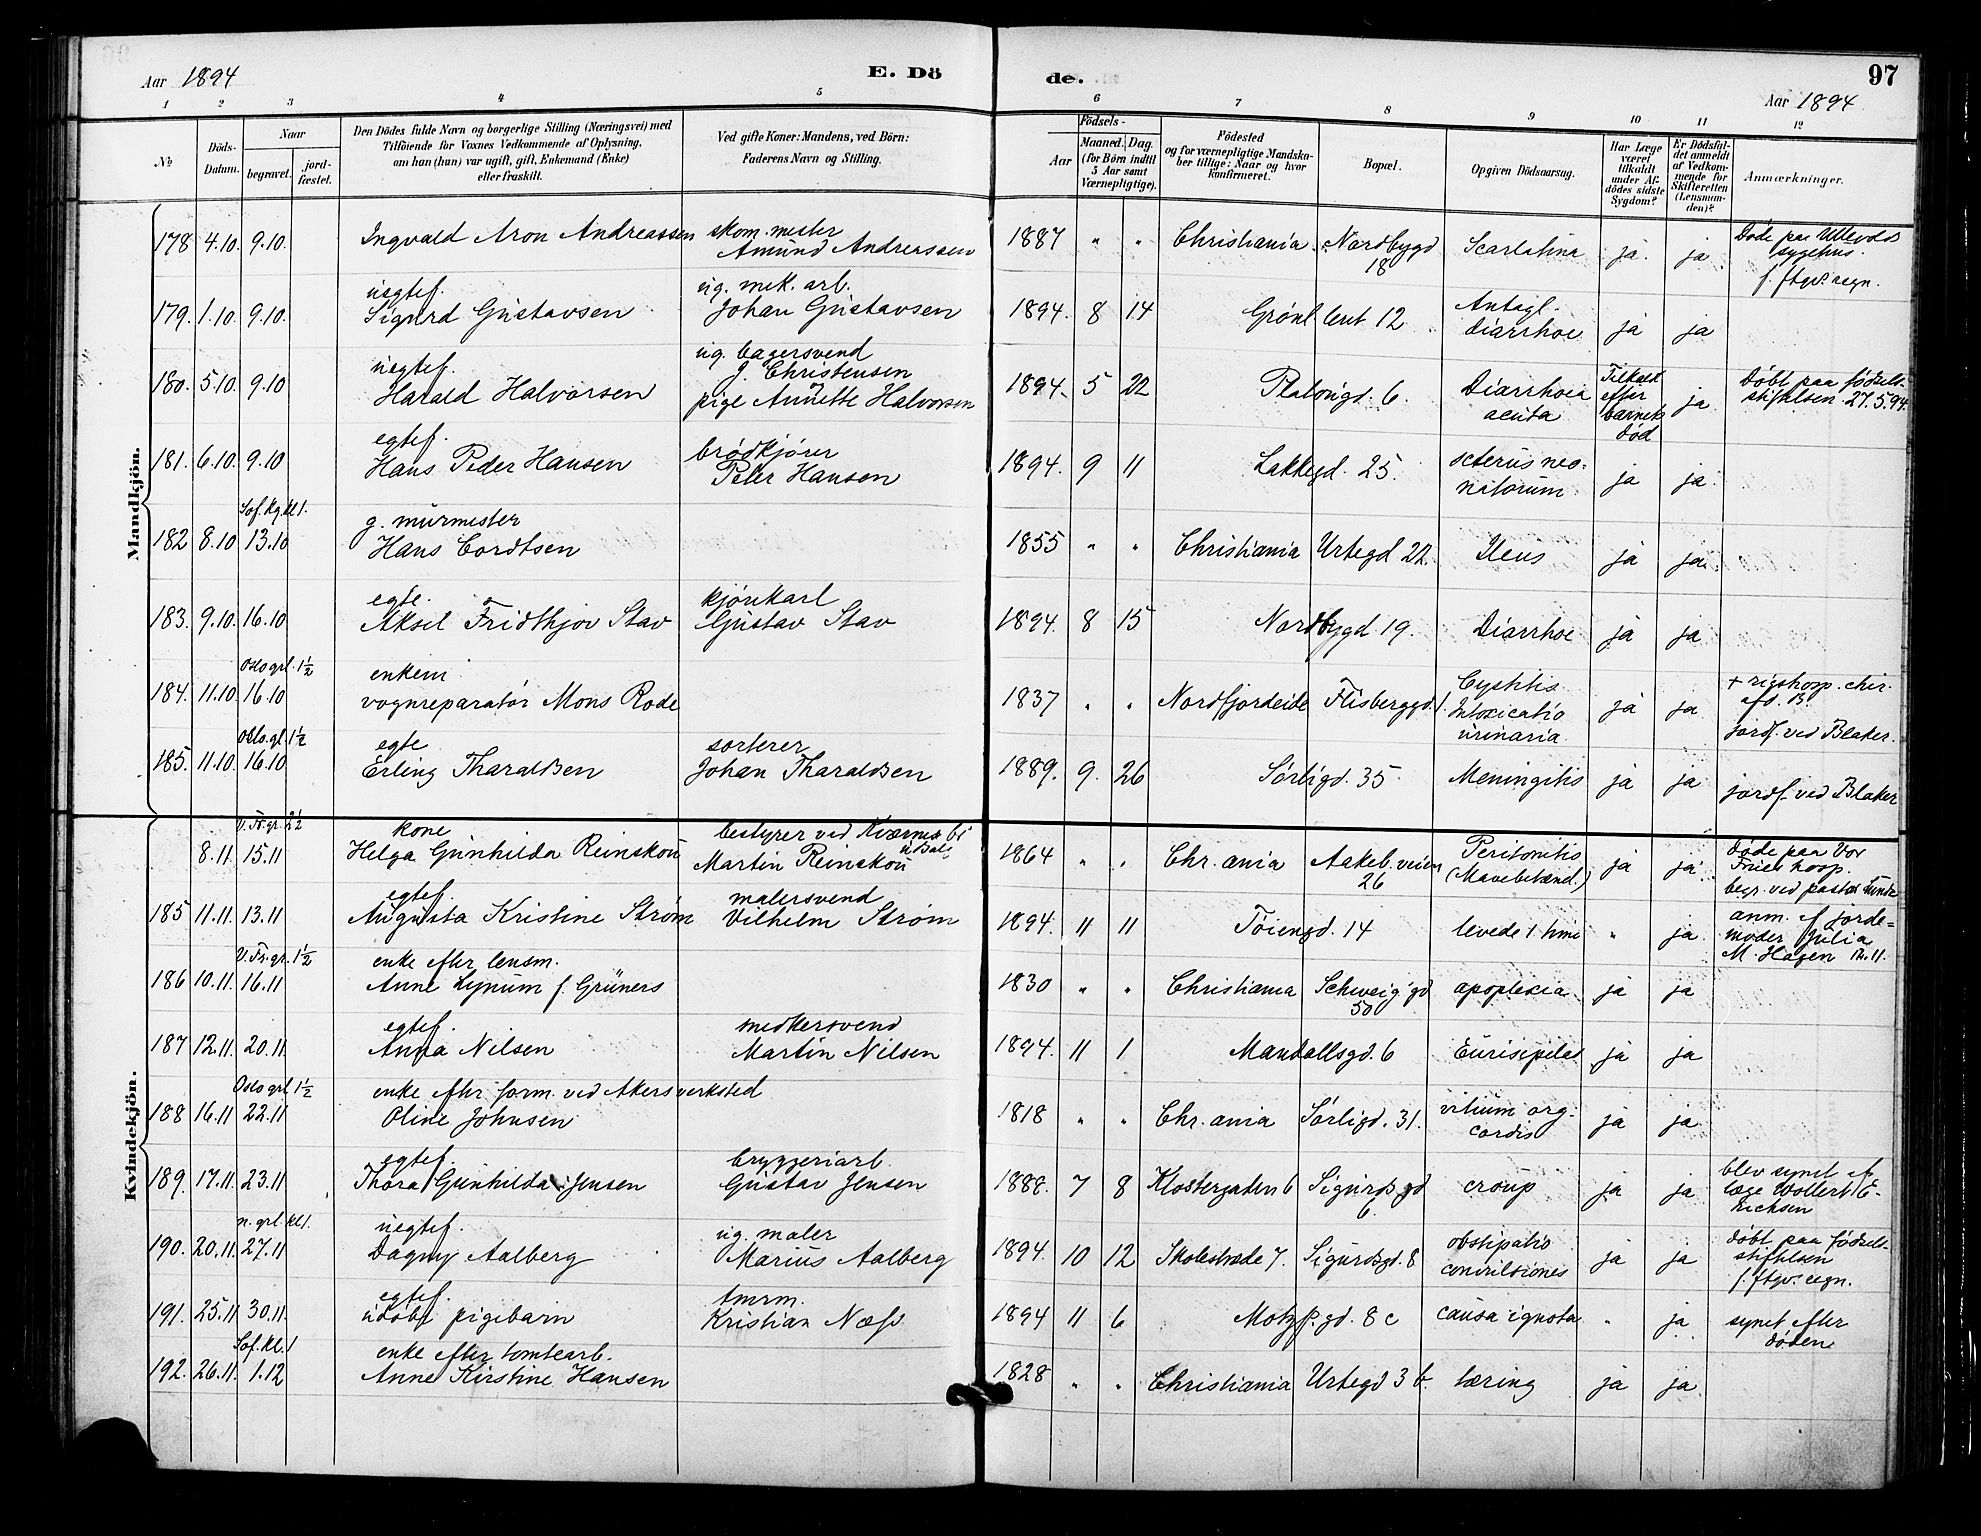 Aar 1894
E. Dö
de.
97
Aar 1894
1 2 3 4 5 6 7 8 9 10 11 12
No
Döds-
Datum.
Naar
begravet.
jord-
fæstet.
Den Dödes fulde Navn og borgerlige Stilling (Næringsvei) med
Tilföiende for Voxnes Vedkommende af Oplysning,
om han (hun) var ugift, gift, Enkemand (Enke)
eller fraskilt.
Ved gifte Koner: Mandens, ved Börn:
Faderens Navn og Stilling.
Födsels-
Aar
Maaned.
Dag.
(for Börn indtil
5 Aar samt
Værnepligtige).
Födested
og for værnepligtige Mandska-
ber tillige: Naar og hvor
konfirmeret.
Bopæl.
Opgiven Dödsaarsag.
Har Læge
været
tilkaldt
under Af-
dödes sidste
Sygdom?
Er Dödsfal-
det anmeldt
af Vedkom-
mende for
Skifteretten
(Lensman-
den)?
Anmærkninger.
Mandkjön.
178 4.10. 9.10. Ingvald Aron Andreassen
skom. mester
Amund Andreassen
1887 " " Christiania Nordbygd
18
Scarlatina ja. ja
Døde paa Ullevold
sygehus.
f. ftgv. regn.
uegtef.
179. 1.10. 9.10. Sigurd Gustavsen
ug. mek. arb.
Johan Gustavsen
1894. 8 14 Grønl leret 12
Antagl.
diarrhoe ja ja
uegtef.
180. 5.10. 9.10 Harald Halvorsen
ug. bagersvend
J. Christensen
og
pige Annette Halvorsen
1894. 5 22 Platougd. 6.
Diarrhoea
acuta
Tilkaldt
efter
barnets
død
ja
Døbt paa fødsels-
stiftelsen 27.5.94.
egtef.
181. 6.10. 9.10 Hans Peder Hansen
brødkjører
Peter Hansen
1894. 9 11 Lakkegd. 25.
Icterus neo-
natorum ja ja
Sof. kg. kl 1.
g. murmester
182 8.10 13.10 Hans Cordtsen
1855 " " Christiania Urtegd 22. Ileus ja ja
egte.
183. 9.10. 16.10 Aksel Fridthjov Stav
kjørekarl
Gustav Stav
1894. 8 15 Nordbygd 19. Diarrhoe ja ja
Oslo grl. 1½
enkem
184. 11.10 16.10 vognreparatør Mons Rode
1837 " " Nordfjordeide Flisberggd. 1.
Cystitis
Intoxicatio
urinaria
ja ja
+ rigshosp. chir.
afd. B
jordf. ved Blaker.
Oslo. gl. 1½
egte
185. 11.10. 16.10 Erling Tharaldsen
sorterer
Johan Tharaldsen
1889. 9. 26 Sørligd. 35 Meningitis ja ja jordf. ved Blaker
Kvindekjön.
V. Fr. gr. 2½
kone
8.11. 15.11 Helga Gunhilda Reinskou
bestyrer ved Kværner
Martin Reinskou
1864 " " Chr.ania Aakeb. veien
26
Peritonitis
(Mavebetænd.)
ja ja
Døde paa Vor
Frues hosp.
begr. ved pastor
egtef.
185 11.11. 13.11 Augusta Kristine Strøm
malersvend
Vilhelm Strøm
1894. 11 11 Tøiengd. 14 levede 1 time " ja
anm. af jorde-
moder Julia
M. Hagen 12.11.
V. Fr. gr. 1½
enke efter lensm.
186 10.11. 16.11 Anne Lynum f. Grüners
1830 " " Christiania Schweig gd
50
apoplexia ja ja
egtef.
187 12.11. 20.11. Anna Nilsen
snedkersvend
Martin Nilsen
1894. 11 1 Mandallsgd. 6 ja ja
Oslo grl 1½
enke efter form. ved Akers verksted
188 16.11 22.11 Oline Johnsen
1818 " " Chr.ania Sørligd. 31.
vitium org.
cordis ja ja
egtef.
189. 17.11. 23.11 Thora Gunhilda Jensen
bryggeriarb.
Gustav Jensen
1888. 7 8 Klostergaden 6 Sigurdsgd
6
croup ja ja
blev synet af
læge Wollert E-
ricksen
n. grl. kl 1.
uegtef.
190. 20.11. 27.11 Dagny Aalberg
ug. maler
Marius Aalberg
1894. 10 12 Skolestræde 7. Sigurdsgd. 8
obstipatio
convulsiones ja ja
døbt paa fødsels-
stiftelsen
f. ftgv. regn.
egtef.
191. 25.11 30.11. udøbt pigebarn
tmrm.
Kristian Næss
1894 11 6 Motzf. gd. 8 c causa ignota " ja
synet efter
døden
Sof. kl. 1
enke efter tomtearb.
192. 26.11. 1.12 Anne Kirstine Hansen
1828 " " Christiania Urtegd 3 b. tæring ja ja.